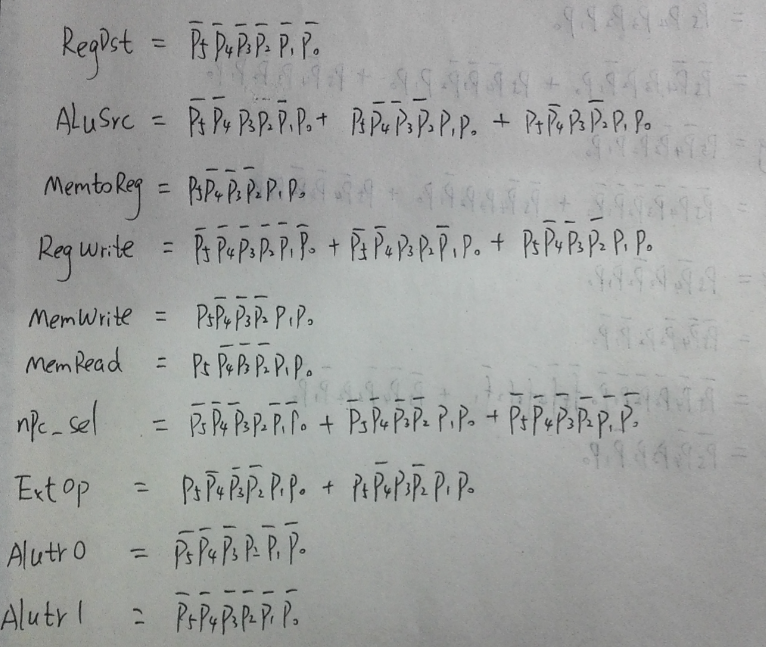 RegDst = P̅₅P̅₄P̅₃P̅₂P̅₁P̅₀
ALuSrc = P̅₅P̅₄P₃P₂P̅₁P₀ + P₅P̅₄P̅₃P̅₂P₁P₀ + P₅P̅₄P₃P̅₂P₁P₀
MemtoReg = P₅P̅₄P̅₃P̅₂P₁P₀
RegWrite = P̅₅P̅₄P̅₃P̅₂P̅₁P̅₀ + P̅₅P̅₄P₃P₂P̅₁P₀ + P₅P̅₄P̅₃P̅₂P₁P₀
MemWrite = P₅P̅₄P̅₃P̅₂P₁P₀
MemRead = P₅P̅₄P̅₃P̅₂P₁P₀
nPc_sel = P̅₅P̅₄P̅₃P₂P̅₁P̅₀ + P̅₅P̅₄P̅₃P̅₂P₁P₀ + P̅₅P̅₄P̅₃P̅₂P̅₁P̅₀
ExtOp = P₅P̅₄P̅₃P̅₂P₁P₀ + P₅P̅₄P₃P̅₂P₁P₀
Alutr0 = P̅₅P̅₄P̅₃P₂P̅₁P̅₀
Alutr1 = P̅₅P̅₄P̅₃P̅₂P̅₁P̅₀